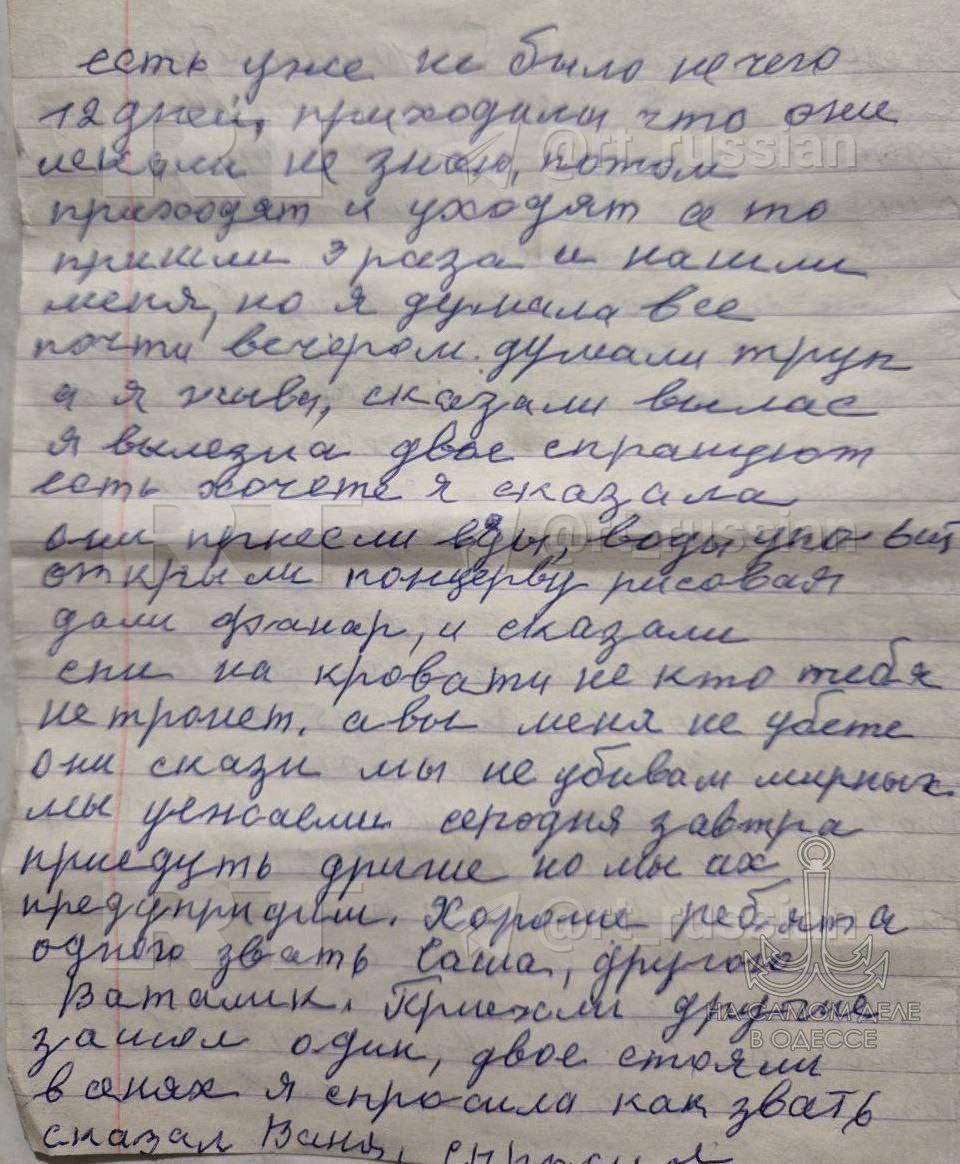 есть уже не было нечего
12 дней, приходили что они
искали не знаю, потом
приходят и уходят а то
пришли 3 раза и нашли
меня, но я думала все
почти вечером. думали труп
а я жива, сказали вылас
я вылезла двое спрашуют
есть хочете я сказала
они принесли воды, воды
открыли концерву рисовая
дали фанар, и сказали
спи на кровати не кто тебя
не тронет. а вы меня не убете
они скази мы не убивам мирных.
мы уежаем сегодня завтра
приедуть другие но мы их
предупридим. Хороши ребята
одного звать Саша, другого
Ваталик. Приехали другие
зашол один, двое стояли
в сенях я спросила как звать
сказал Ваня,
RT @rt_russian
RT @rt_russian
RT @rt_russian
НА САМОМ ДЕЛЕ
В ОДЕССЕ